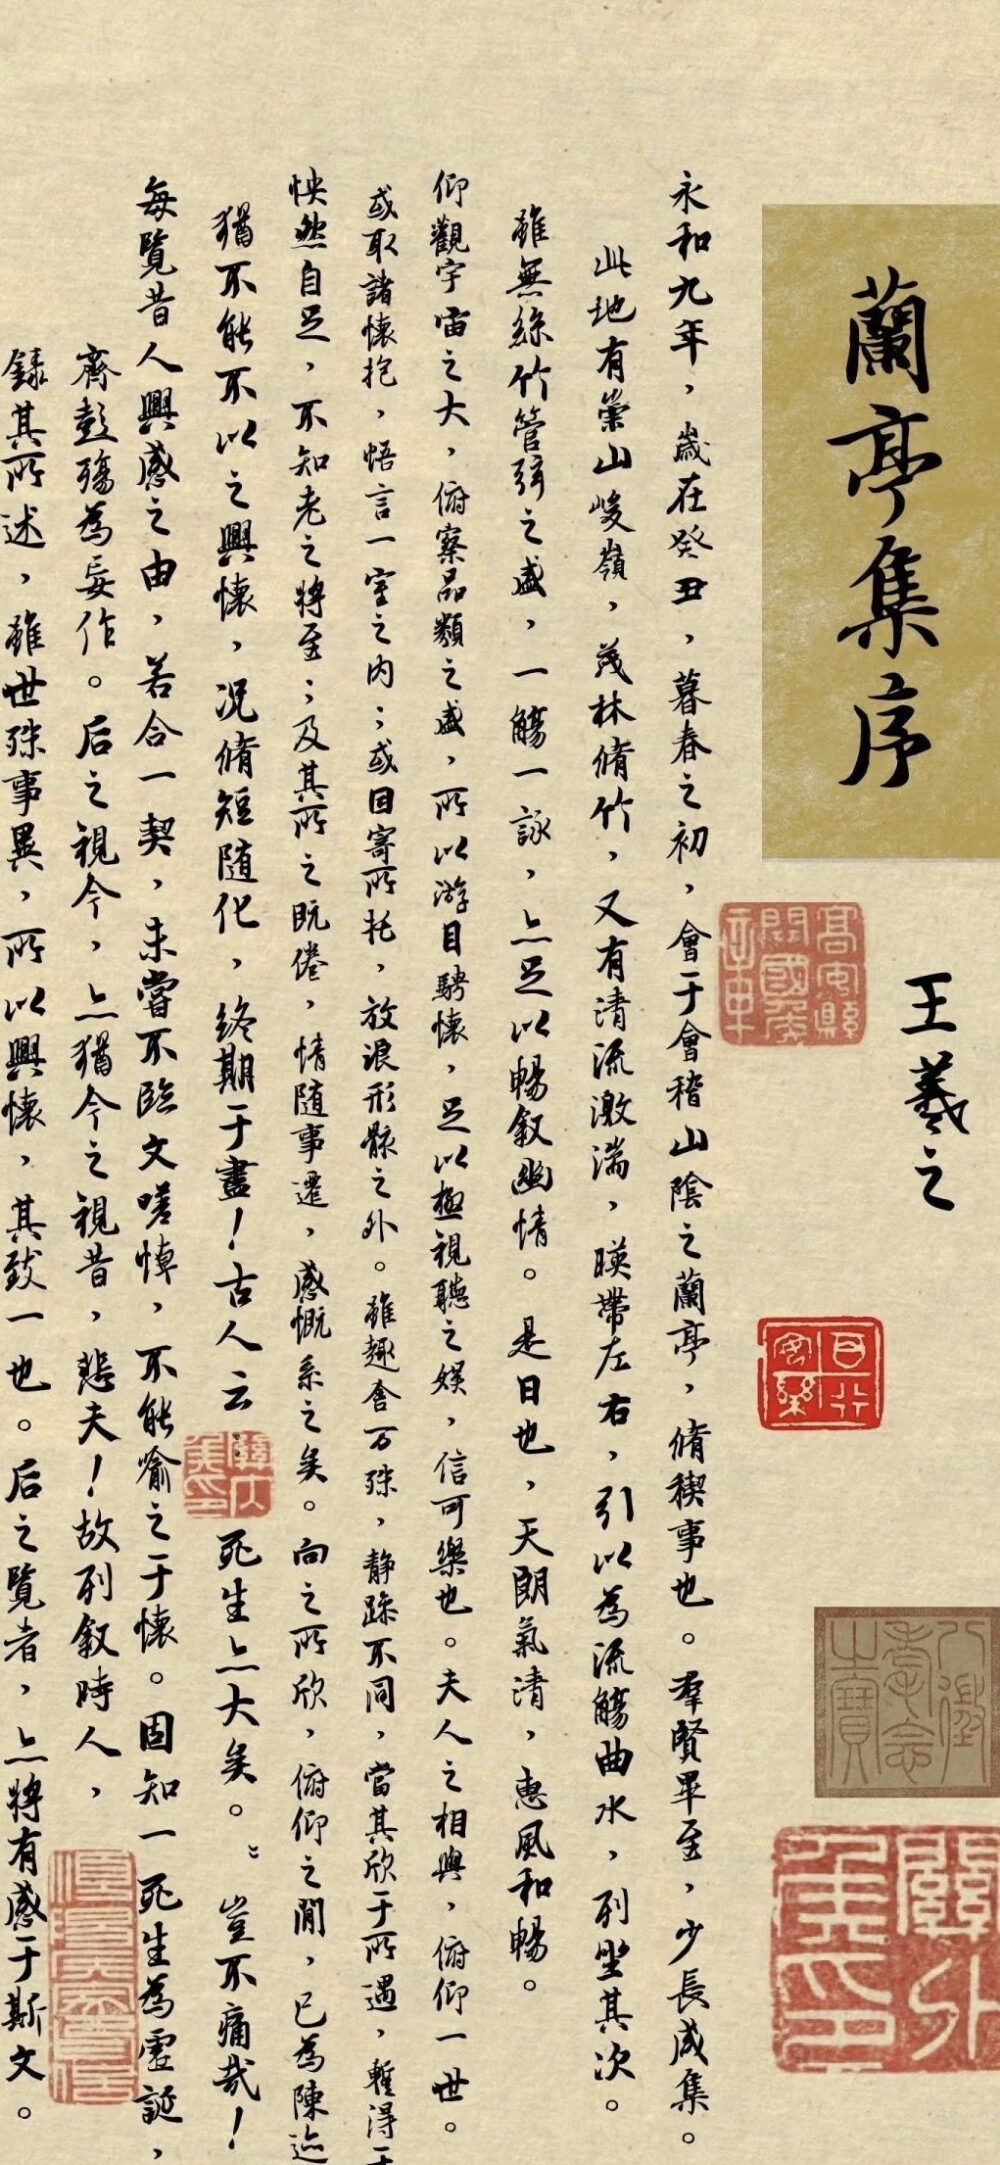 蘭亭集序
王羲之
八徵耄念之寶
關外侯印
永和九年，歲在癸丑，暮春之初，會于會稽山陰之蘭亭，脩稧事也。羣賢畢至，少長咸集。
此地有崇山峻嶺，茂林脩竹，又有清流激湍，暎帶左右，引以為流觴曲水，列坐其次。
雖無絲竹管弦之盛，一觴一詠，亦足以暢叙幽情。是日也，天朗氣清，惠風和暢。
仰觀宇宙之大，俯察品類之盛，所以游目騁懷，足以極視聽之娛，信可樂也。夫人之相與，俯仰一世。
或取諸懷抱，悟言一室之内；或因寄所托，放浪形骸之外。雖趣舍万殊，静躁不同，當其欣于所遇，暫得于
怏然自足，不知老之將至；及其所之既倦，情随事遷，感慨系之矣。向之所欣，俯仰之間，已為陳迹
猶不能不以之興懷，况脩短随化，終期于盡！古人云：死生亦大矣。豈不痛哉！
每覽昔人興感之由，若合一契，未嘗不臨文嗟悼，不能喻之于懷。固知一死生為虛誕，
齊彭殤為妄作。后之視今，亦猶今之視昔，悲夫！故列叙時人，
錄其所述，雖世殊事異，所以興懷，其致一也。后之覽者，亦將有感于斯文。